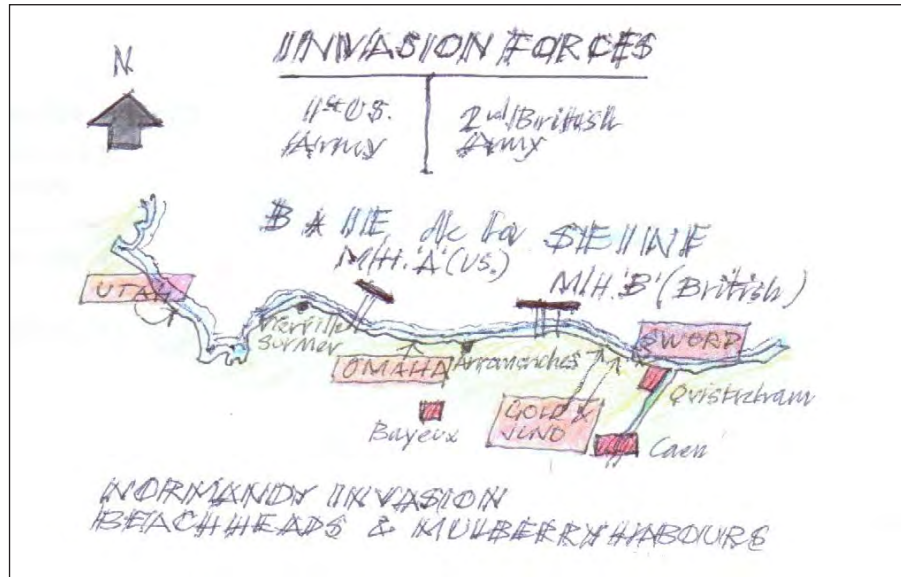 INVASION FORCES
N
1st US.
Army
2nd British
Army
BAIE de la SEINE
M/H.'A'(US.)
M/H.'B'(British)
UTAH
Vierville
Surmer
OMAHA
Arromanches
SWORD
GOLD &
JUNO
Ouistreham
Bayeux
Caen
NORMANDY INVASION
BEACHHEADS & MULBERRY HABOURS